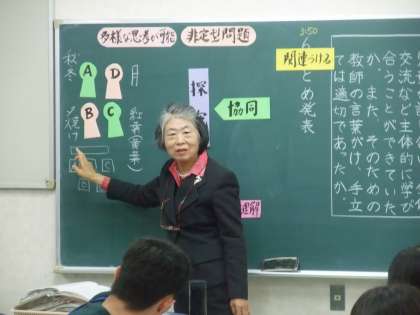 多様な思考が可能
非定型問題
交流など主体的に学び
合うことができていた
か。また、そのための
教師の言葉がけ、手立
ては適切であったか。
3:50
関連づける
まとめ発表
協同
探
理解
月
紅葉(黄葉)
A
D
B
C
秋
冬
焼け